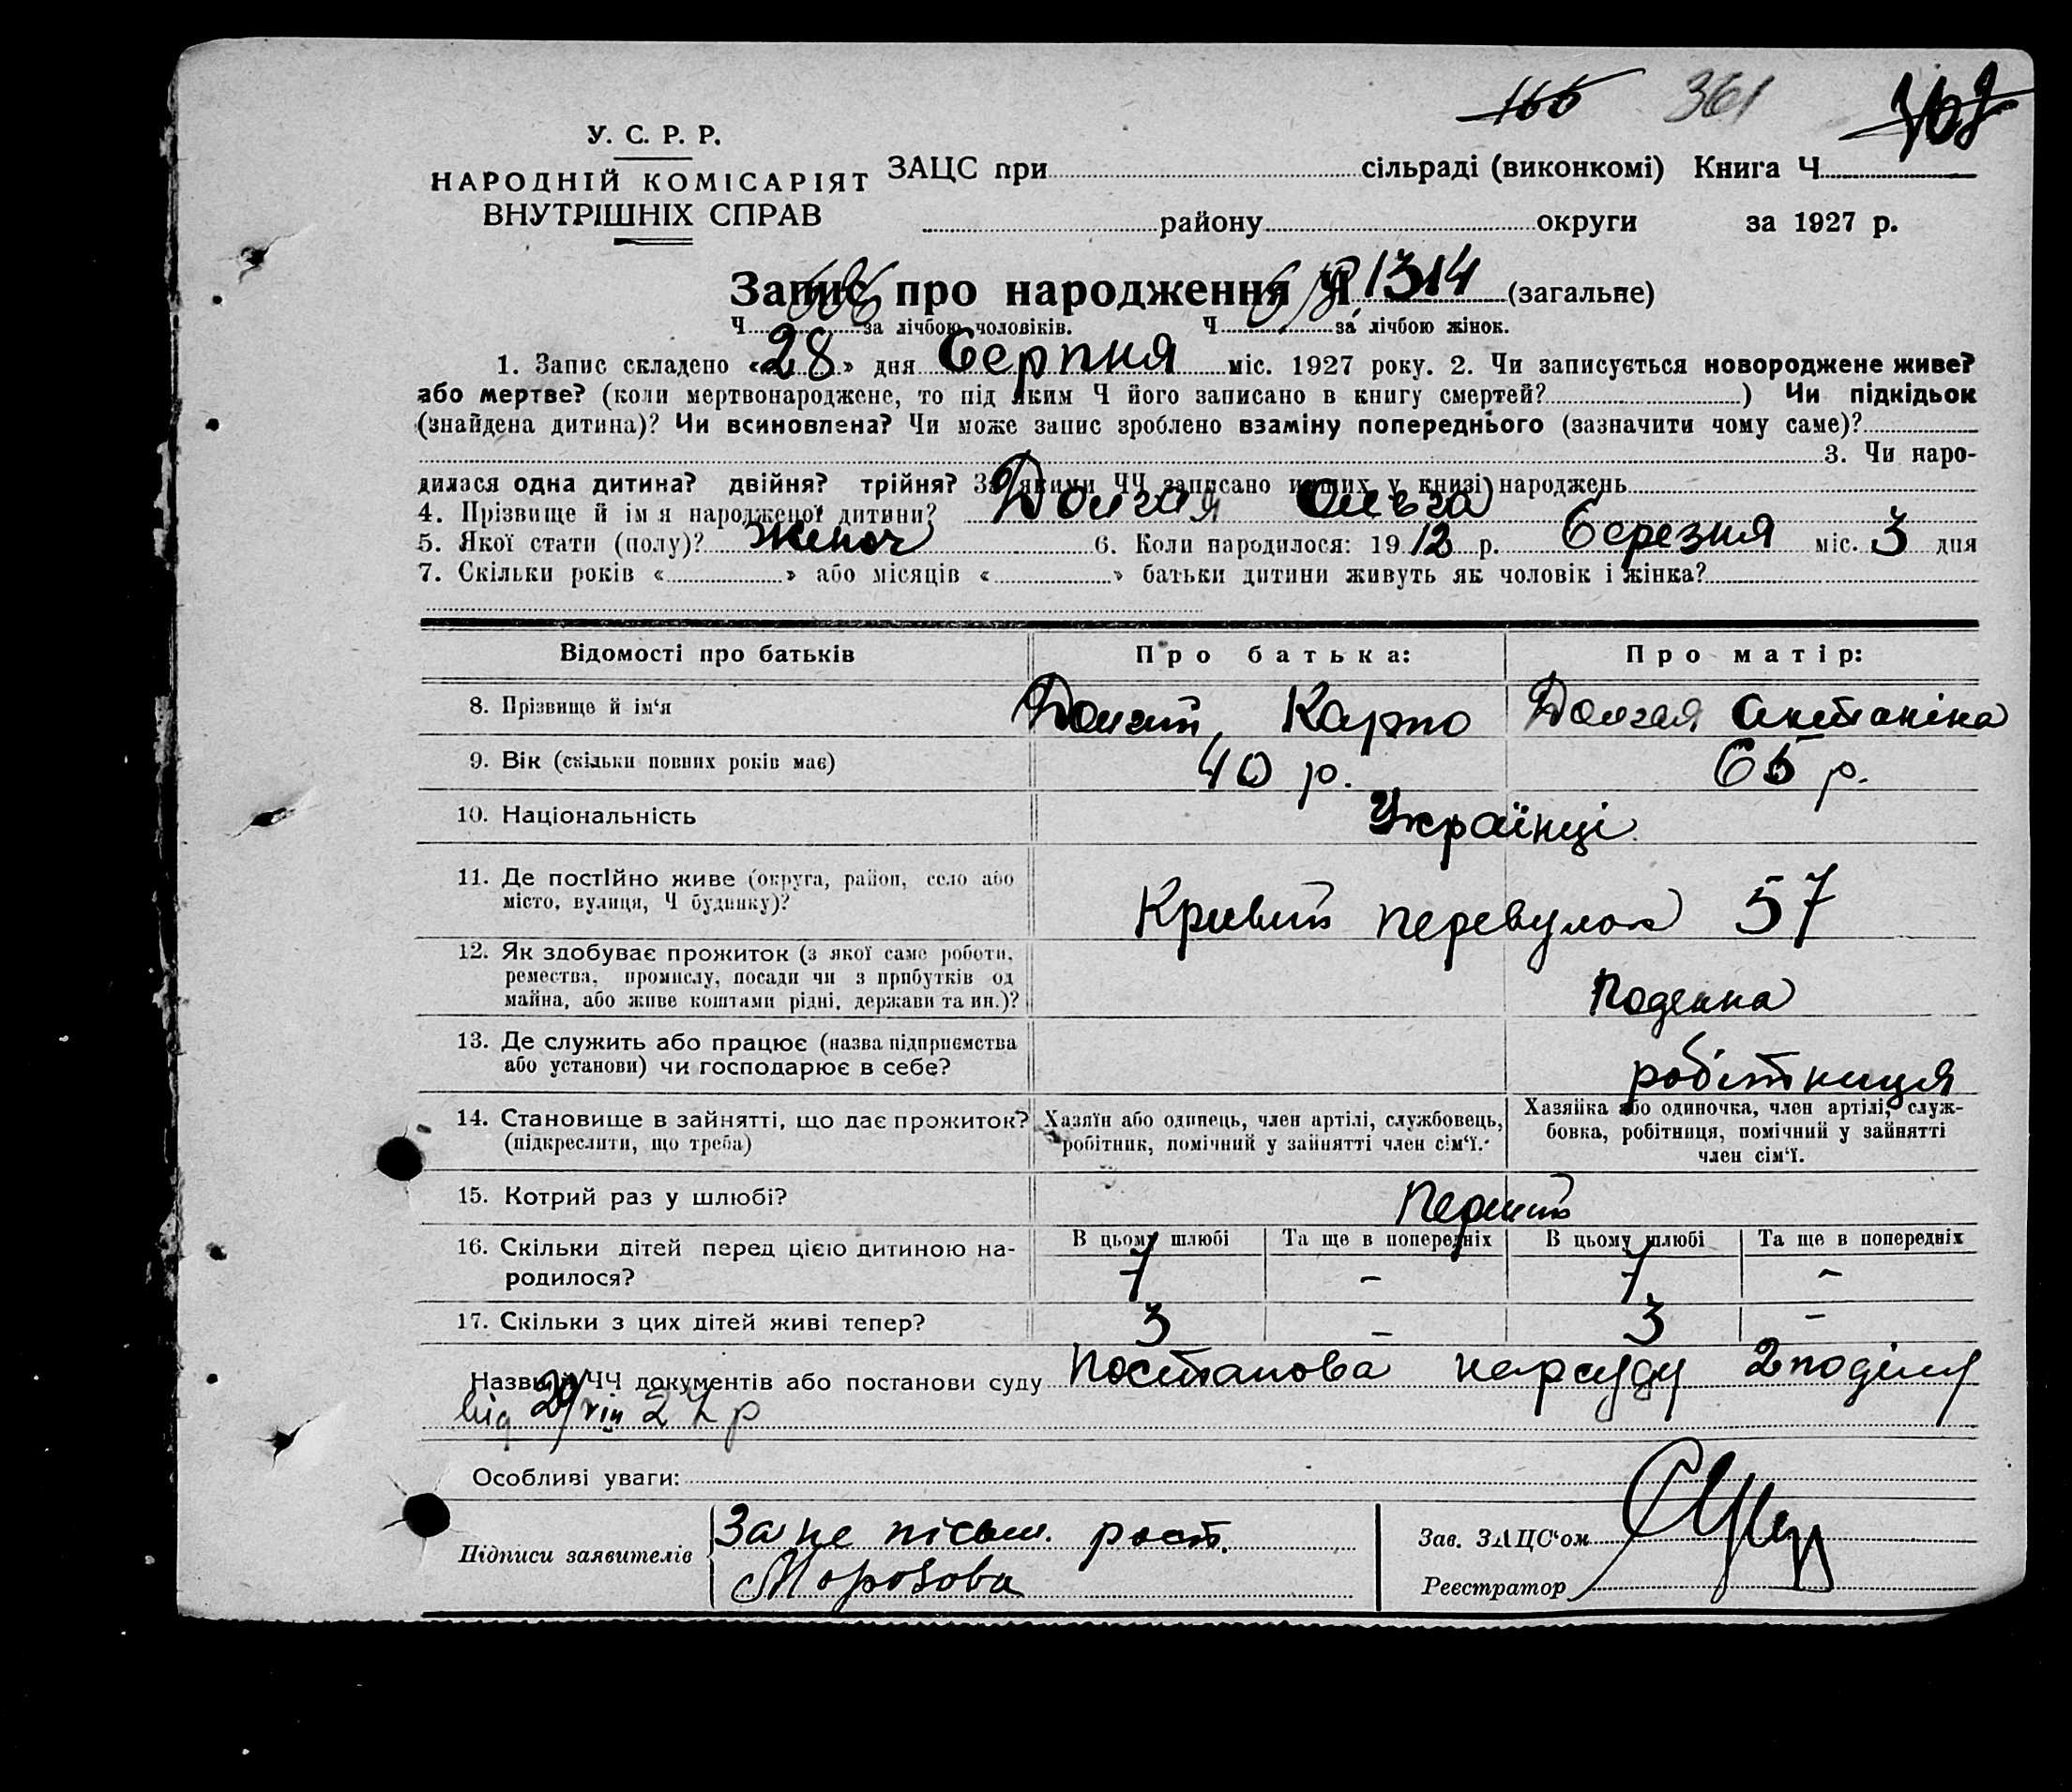 166 361
У. С. Р. Р.
НАРОДНІЙ КОМІСАРІЯТ
ВНУТРІШНІХ СПРАВ
ЗАЦС при сільраді (виконкомі) Книга Ч
району округи за 1927 р.
Запис про народження Ч 1314 (загальне)
Ч 686 за лічбою чоловіків. Ч за лічбою жінок.
1. Запис складено «28» дня Серпня міс. 1927 року. 2. Чи записується новороджене живе?
або мертве? (коли мертвонароджене, то під яким Ч його записано в книгу смертей? ) Чи підкідьок
(знайдена дитина)? Чи всиновлена? Чи може запис зроблено взаміну попереднього (зазначити чому саме)?
3. Чи наро-
дилася одна дитина? двійня? трійня? За якими ЧЧ записано инших у книзі народжень
4. Прізвище й ім'я народженої дитини? Долгая Ольга
5. Якої стати (полу)? женоч 6. Коли народилося: 1912 р. березня міс. 3 дня
7. Скільки років « » або місяців « » батьки дитини живуть як чоловік і жінка?
Відомості про батьків Про батька: Про матір:
8. Прізвище й ім'я Долгий Карпо Долгая Антоніна
9. Вік (скільки повних років має) 40 р. 65 р.
10. Національність Українці
11. Де постійно живе (округа, район, село або
місто, вулиця, Ч будинку)? Кривий перевулок 57
12. Як здобуває прожиток (з якої саме роботи,
ремества, промислу, посади чи з прибутків од
майна, або живе коштами рідні, держави та ин.)? Поденна
13. Де служить або працює (назва підприємства
або установи) чи господарює в себе? робітниця
14. Становище в зайнятті, що дає прожиток?
(підкреслити, що треба)
Хазяїн або одинець, член артілі, службовець,
робітник, помічний у зайнятті член сім'ї.
Хазяйка або одиночка, член артілі, служ-
бовка, робітниця, помічний у зайнятті
член сім'ї.
15. Котрий раз у шлюбі? Перший
В цьому шлюбі Та ще в попередніх В цьому шлюбі Та ще в попередніх
16. Скільки дітей перед цією дитиною на-
родилося? 7 - 7 -
17. Скільки з цих дітей живі тепер? 3 - 3 -
Назви й ЧЧ документів або постанови суду Постанова нарсуду 2 поділу
від 29/VIII 27 р
Особливі уваги:
Підписи заявителів За не письм. рост.
Морозова
Зав. ЗАЦС'ом
Реєстратор